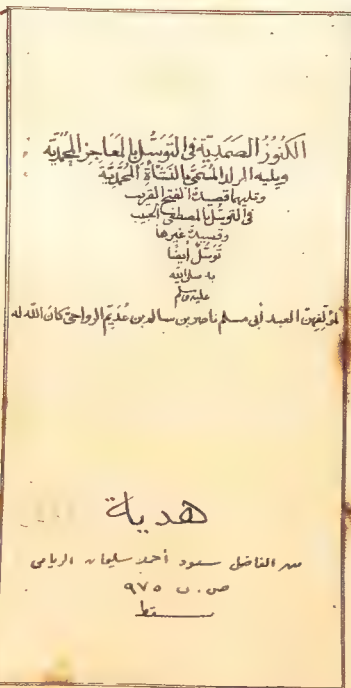 الكُنُوزُ الصَمَدِيَّة فى التَوَسُّلِ بِالمَعَاجِزِ المُحَمَّدِيَّه
ويليه المولد المُسَمَّى بِالنَشْأَةِ المُحَمَّدِيَّة
وتليهما قصيدة الفتح القريب
فى التوسُل بالمصطفى الحبيب
وقصيدة غيرها
تَوَسُّلٌ أيضا
به صلى الله
عليه وسلم
لمؤلفهن العبد أبى مسلم ناصر بن سالم بن عُدَيِّم الرواحى كان الله له
هدية
من الفاضل سعود أحمد سليمان الريامى
ص.ب ٩٧٥
مسقط